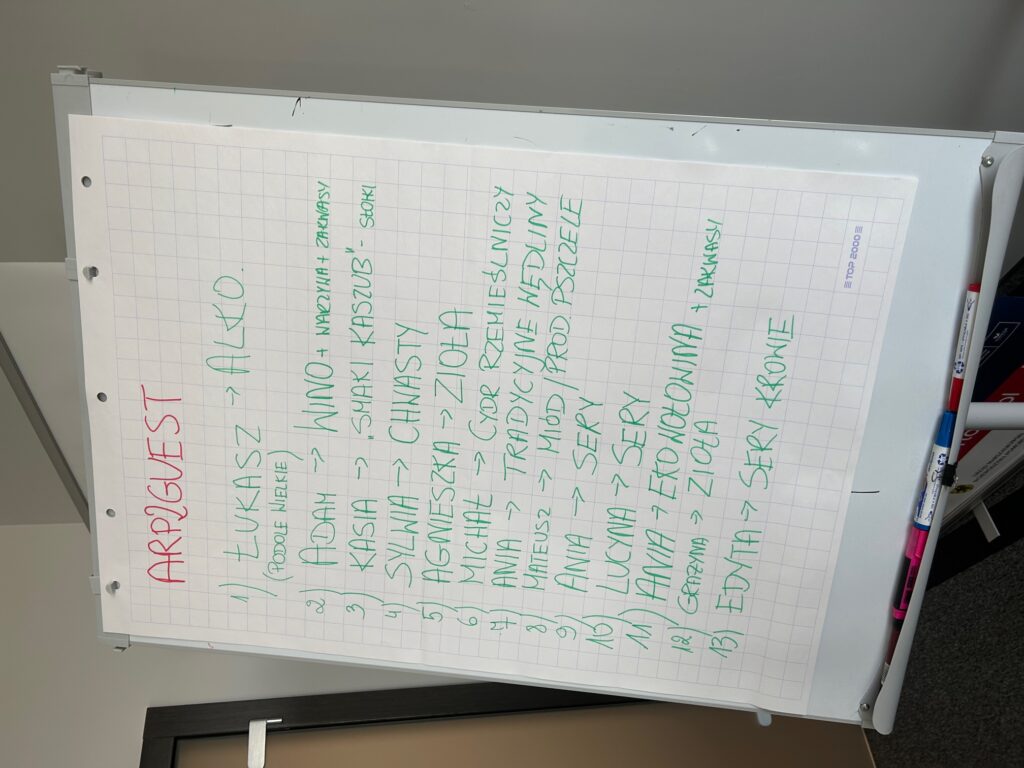 ARP2GUEST
1) ŁUKASZ → ALKO.
(PODOLE WIELKIE)
2) ADAM → WINO + WARZYWA + ZAKWASY
3) KASIA → „SMAKI KASZUB" - SŁOIKI
4) SYLWIA → CHWASTY
5) AGNIESZKA → ZIOŁA
6) MICHAŁ → CYDR RZEMIEŚLNICZY
7) ANIA → TRADYCYJNE WĘDLINY
8) MATEUSZ → MIÓD / PROD. PSZCZELE
9) ANIA → SERY
10) LUCYNA → SERY
11) ANIA → EKOWOŁOWINA
12) GRAŻYNA → ZIOŁA + ZAKWASY
13) EDYTA → SERY KROWIE
TOP 2000